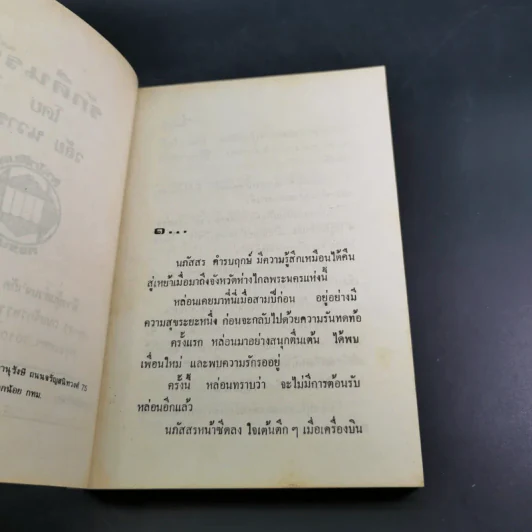 ๑...
นภัสสร คำรบฤกษ์ มีความรู้สึกเหมือนได้คืน
สู่เหย้าเมื่อมาถึงจังหวัดห่างไกลพระนครแห่งนี้
หล่อนเคยมาที่นี่เมื่อสามปีก่อน อยู่อย่างมี
ความสุขระยะหนึ่ง ก่อนจะกลับไปด้วยความรันทดท้อ
ครั้งแรก หล่อนมาอย่างสนุกตื่นเต้น ได้พบ
เพื่อนใหม่ และพบความรักรออยู่
ครั้งนี้ หล่อนทราบว่า จะไม่มีการต้อนรับ
หล่อนอีกแล้ว
นภัสสรหน้าซีดลง ใจเต้นตึก ๆ เมื่อเครื่องบิน
ถนนจรัญสนิทวงศ์ 75
กน้อย กทม.